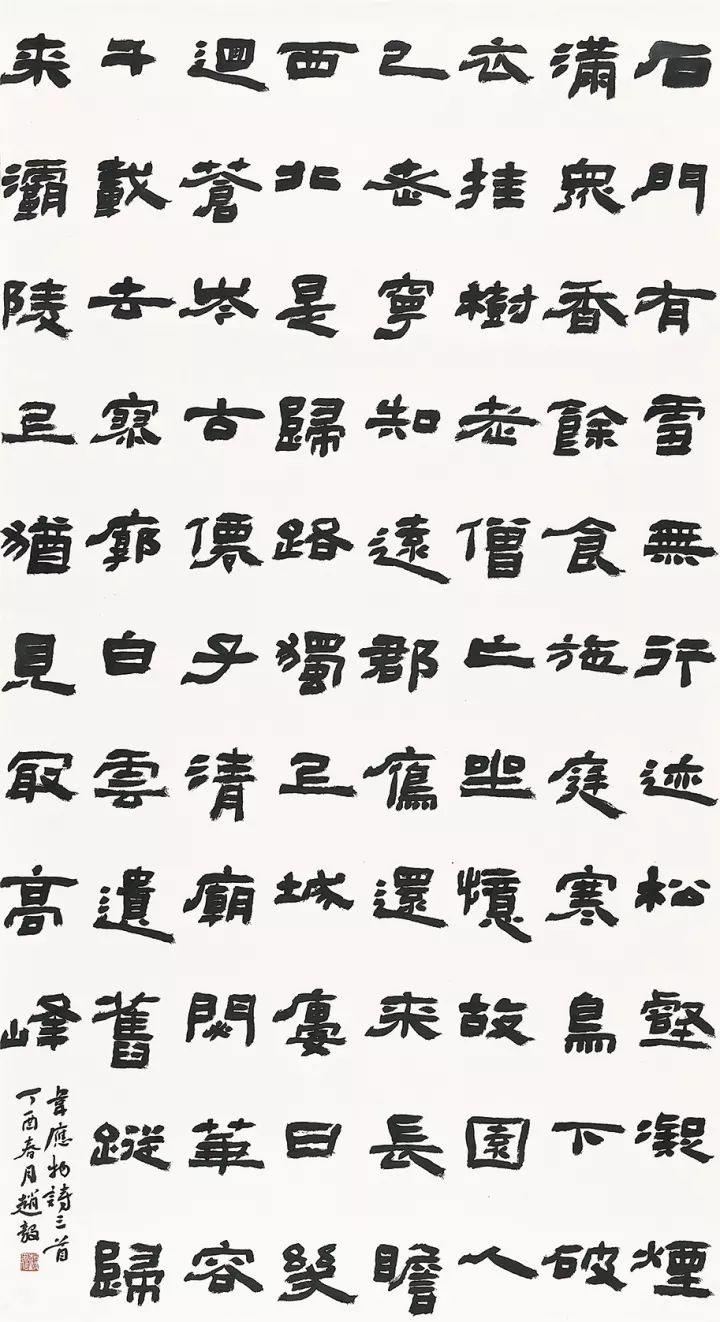 石門有雪無行迹松壑凝煙
滿眾香餘食施庭寒鳥下破
衣挂樹老僧亡坐憶故園人
已老寧知遠郡鴈還來長瞻
西北是歸路獨上城廔日幾
迴蒼岑古僊子清廟閟華容
千載去寥廓白雲遺舊蹤歸
來灞陵上猶見冣高峰
韋應物詩三首
丁酉春月趙毅